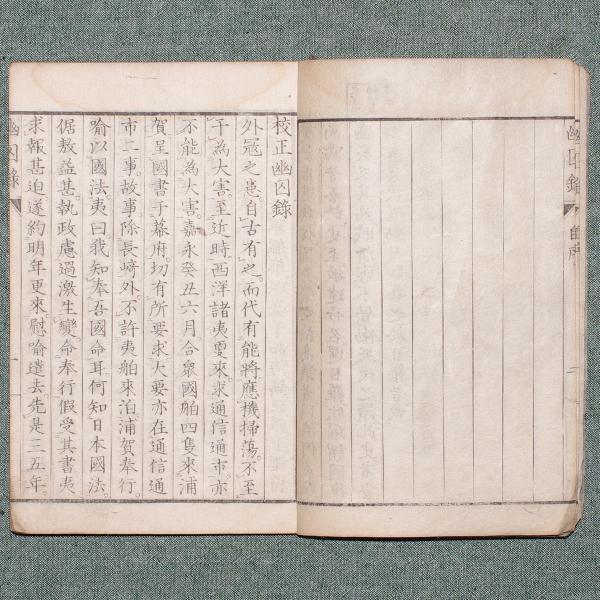 幽囚錄
自序
二
校正幽囚錄
外冦之患。自古有之。而代有能將應機掃蕩。不至
于為大害。至近時。西洋諸夷來。求通信通市。亦
不能為大害。嘉永癸丑六月。合衆國舶四隻來浦
賀呈國書于幕府。切有所要求大要亦在通信通
市二事。故事除長崎外。不許夷舶來泊浦賀奉行。
喻以國法。夷曰我知奉吾國命耳。何知日本國法。
倨敖益甚。執政慮過激生變。命奉行假受其書夷
求報甚迫遂約明年更來慰喻遣去。先是三五年。
幽囚錄
一